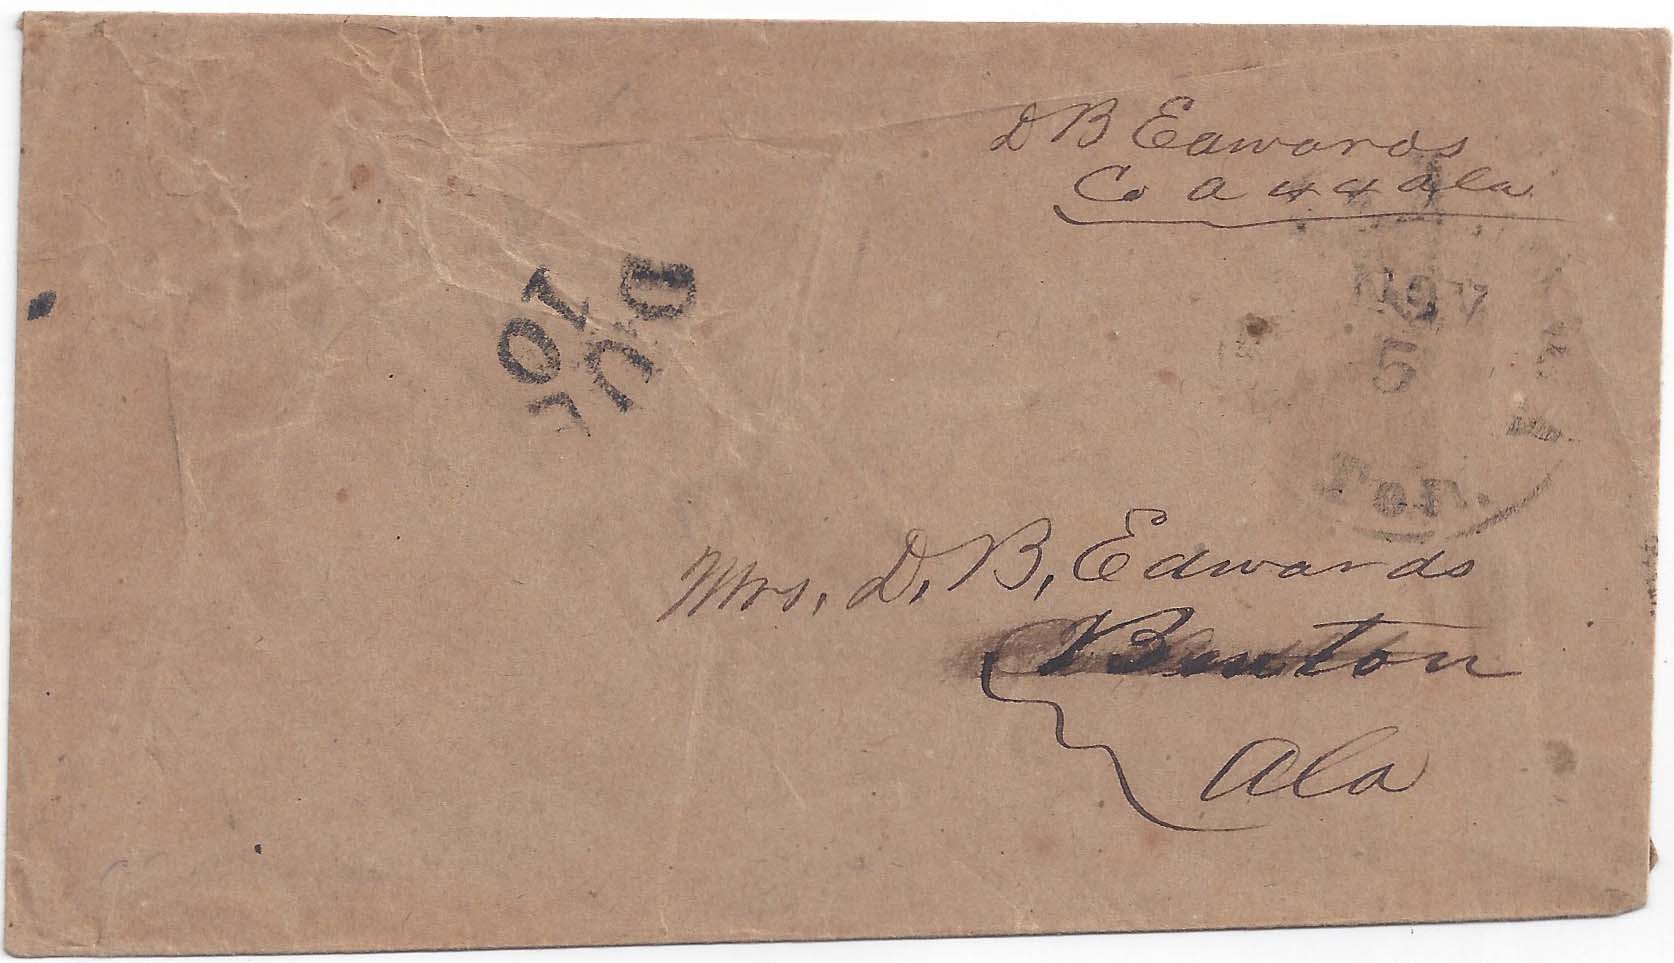 D B Edwards
Co A 44 Ala
DUE
10
Nov
5
Ten.
Mrs. D. B. Edwards
Benton
Ala